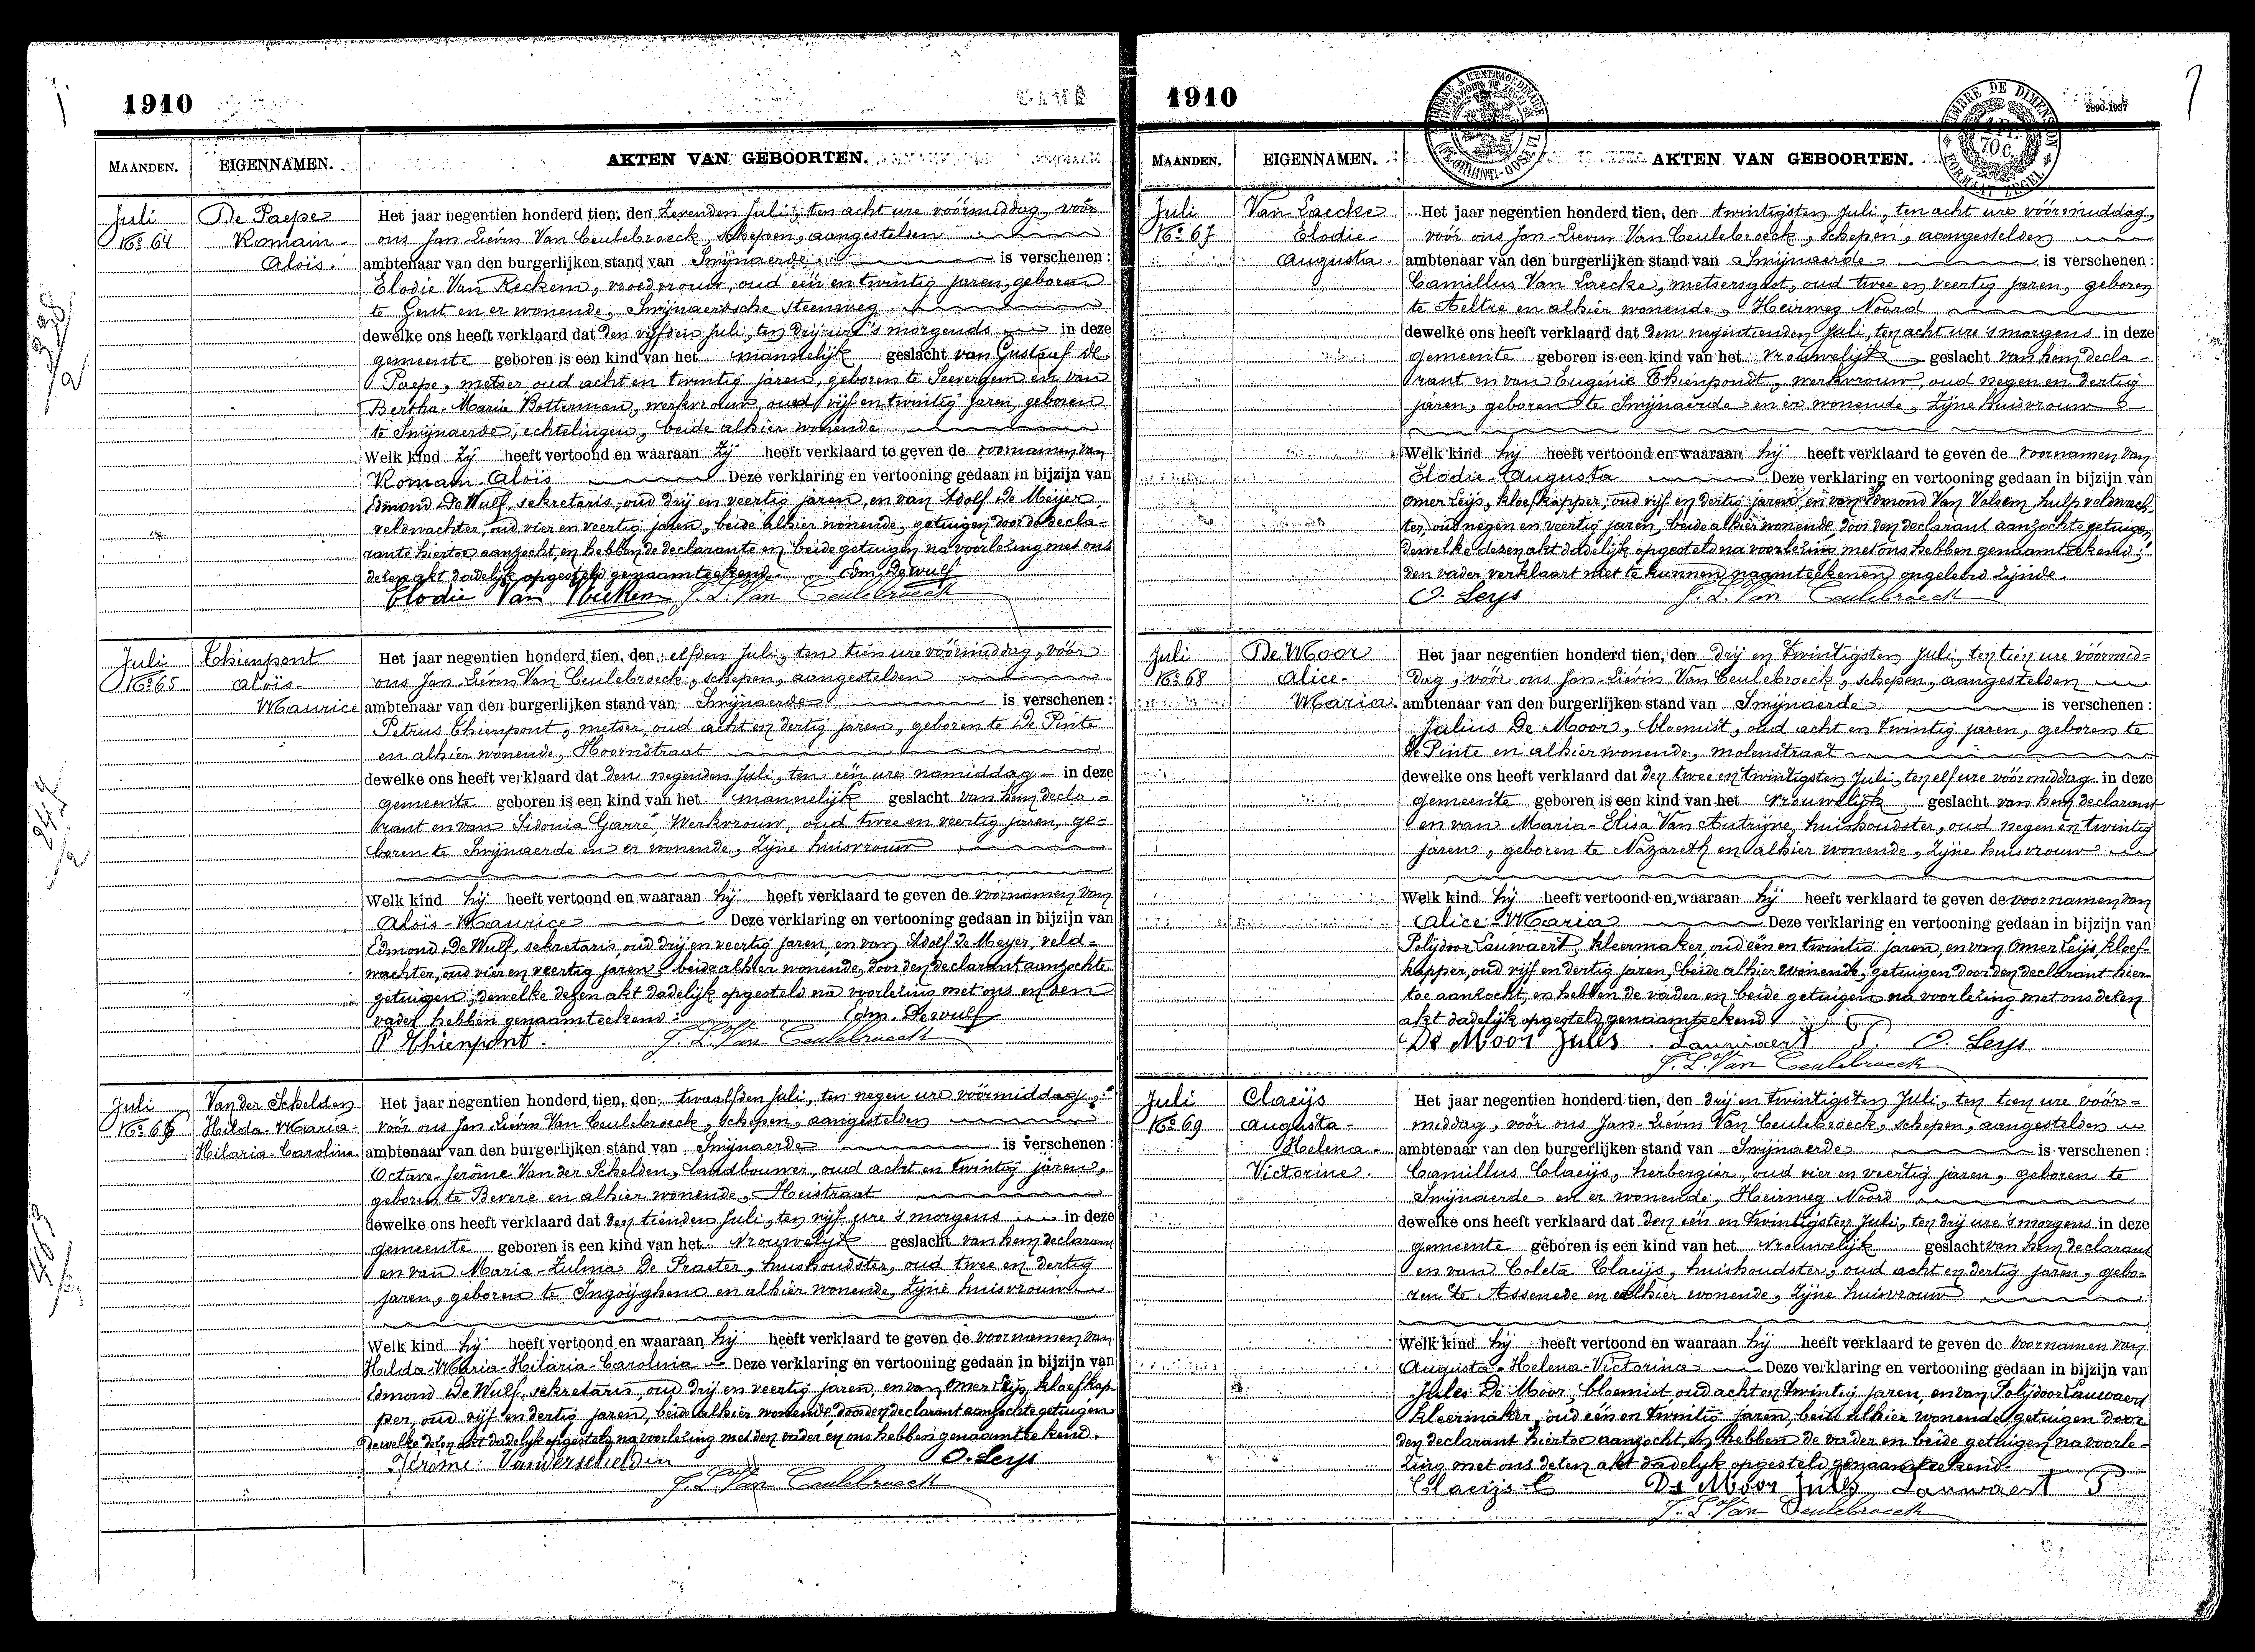 1910
MAANDEN. EIGENNAMEN. AKTEN VAN GEBOORTEN.
Juli
No 64
De Paepe
Romain-
Aloïs.
Het jaar negentien honderd tien, den Zevenden Juli, ten acht ure vóórmiddag, vóór
ons Jan Liévin Van Ceulebroeck, schepen, aangestelden
ambtenaar van den burgerlijken stand van Swijnaerde is verschenen:
Elodie Van Reckem, vroedvrouw, oud één en twintig jaren, geboren
te Gent en er wonende, Swijnaerdsche Steenweg
dewelke ons heeft verklaard dat den vijfden Juli, ten drij ure 's morgends in deze
gemeente geboren is een kind van het mannelijk geslacht van Gustaaf De
Paepe, metser, oud acht en twintig jaren, geboren te Seevergem en van
Bertha-Maria Botterman, werkvrouw, oud vijf en twintig jaren, geboren
te Swijnaerde, echtelingen, beide alhier wonende
Welk kind Zij heeft vertoond en waaraan Zij heeft verklaard te geven de voornamen van
Romain-Aloïs Deze verklaring en vertooning gedaan in bijzijn van
Edmond De Wulf, sekretaris, oud drij en veertig jaren, en van Adolf De Meijer,
veldwachter, oud vier en veertig jaren, beide alhier wonende, getuigen door de decla-
rante hiertoe aanzocht, en hebben de declarante en beide getuigen na voorlezing met ons
dezen akt dadelijk opgesteld genaamteekend. Edm. Dewulf
Elodie Van J. L. Van Ceulebroeck
Juli
No 65
Thienpont
Aloïs-
Maurice
Het jaar negentien honderd tien, den elfden Juli, ten tien ure vóórmiddag, vóór
ons Jan Liévin Van Ceulebroeck, schepen, aangestelden
ambtenaar van den burgerlijken stand van Swijnaerde is verschenen:
Petrus Thienpont, metser, oud acht en dertig jaren, geboren te De Pinte
en alhier wonende, Hoornstraat
dewelke ons heeft verklaard dat den negenden Juli, ten één ure namiddag in deze
gemeente geboren is een kind van het mannelijk geslacht van hem decla-
rant en van Sidonia Garré, Werkvrouw, oud twee en veertig jaren, ge-
boren te Swijnaerde en er wonende, Zijne huisvrouw
Welk kind hij heeft vertoond en waaraan hij heeft verklaard te geven de voornamen van
Aloïs-Maurice Deze verklaring en vertooning gedaan in bijzijn van
Edmond De Wulf, sekretaris, oud drij en veertig jaren, en van Adolf De Meyer, veld-
wachter, oud vier en veertig jaren, beide alhier wonende, door den declarant aanzochte
getuigen, dewelke dezen akt dadelijk opgesteld na voorlezing met ons en den
vader hebben genaamteekend. Edm. Dewulf
P Thienpont. J. L. Van Ceulebroeck
Juli
No 66
Van der Schelden
Hilda-Maria-
Hilaria-Carolina
Het jaar negentien honderd tien, den twaalfden Juli, ten negen ure vóórmiddag,
vóór ons Jan Liévin Van Ceulebroeck, schepen, aangestelden
ambtenaar van den burgerlijken stand van Swijnaerde is verschenen:
Octave-Jerôme Van der Schelden, landbouwer, oud acht en twintig jaren,
geboren te Bevere en alhier wonende, Heistraat
dewelke ons heeft verklaard dat den tienden Juli, ten vijf ure 's morgens in deze
gemeente geboren is een kind van het vrouwelijk geslacht van hem declarant
en van Maria-Zulma De Praeter, huishoudster, oud twee en dertig
jaren, geboren te Ingoijghem en alhier wonende, Zijne huisvrouw
Welk kind hij heeft vertoond en waaraan hij heeft verklaard te geven de voornamen van
Hilda-Maria-Hilaria-Carolina Deze verklaring en vertooning gedaan in bijzijn van
Edmond De Wulf, sekretaris, oud drij en veertig jaren, en van Omer Leijs, kloefkap-
per, oud vijf en dertig jaren, beide alhier wonende, door den declarant aanzochte getuigen
dewelke dezen akt dadelijk opgesteld na voorlezing met den vader en ons hebben genaamteekend.
Jérôme Vanderschelden O. Leys
J. L. Van Ceulebroeck
1910
2890-1937
MAANDEN. EIGENNAMEN. AKTEN VAN GEBOORTEN.
Juli
No 67
Van Laecke
Elodie-
Augusta.
Het jaar negentien honderd tien, den twintigsten Juli, ten acht ure vóórmiddag,
vóór ons Jan-Lievin Van Ceulebroeck, schepen, aangestelden
ambtenaar van den burgerlijken stand van Swijnaerde is verschenen:
Camillus Van Laecke, metsersgast, oud twee en veertig jaren, geboren
te Aeltre en alhier wonende, Heirweg Noord
dewelke ons heeft verklaard dat den negentienden Juli, ten acht ure 's morgens in deze
gemeente geboren is een kind van het vrouwelijk geslacht van hem decla-
rant en van Eugénie Thienpondt, werkvrouw, oud negen en dertig
jaren, geboren te Swijnaerde en er wonende, Zijne huisvrouw
Welk kind hij heeft vertoond en waaraan hij heeft verklaard te geven de voornamen van
Elodie-Augusta Deze verklaring en vertooning gedaan in bijzijn van
Omer Leijs, kloefkapper, oud vijf en dertig jaren, en van Edmond Van Volsem, hulp veldwach-
ter, oud negen en veertig jaren, beide alhier wonende, door den declarant aanzochte getuigen,
dewelke dezen akt dadelijk opgesteld na voorlezing met ons hebben genaamteekend;
den vader verklaart niet te kunnen naamteekenen ongeleerd zijnde.
O. Leys J. L. Van Ceulebroeck
Juli
No 68
De Moor
Alice-
Maria.
Het jaar negentien honderd tien, den drij en twintigsten Juli, ten tien ure vóórmid-
dag, vóór ons Jan-Liévin Van Ceulebroeck, schepen, aangestelden
ambtenaar van den burgerlijken stand van Swijnaerde is verschenen:
Julius De Moor, bloemist, oud acht en twintig jaren, geboren te
De Pinte en alhier wonende, molenstraat
dewelke ons heeft verklaard dat den twee en twintigsten Juli, ten elf ure vóórmiddag in deze
gemeente geboren is een kind van het vrouwelijk geslacht van hem declarant
en van Maria-Elisa Van Autrijve, huishoudster, oud negen en twintig
jaren, geboren te Nazareth en alhier wonende, Zijne huisvrouw
Welk kind hij heeft vertoond en waaraan hij heeft verklaard te geven de voornamen van
Alice-Maria Deze verklaring en vertooning gedaan in bijzijn van
Polijdoor Lauwaert, kleermaker, oud één en twintig jaren, en van Omer Leijs, kloef-
kapper, oud vijf en dertig jaren, beide alhier wonende, getuigen door den declarant hier-
toe aanzocht, en hebben de vader en beide getuigen na voorlezing met ons dezen
akt dadelijk opgesteld genaamteekend.
De Moor Jules Lauwaert P. O. Leys
J. L. Van Ceulebroeck
Juli
No 69
Claeijs
Augusta-
Helena-
Victorine.
Het jaar negentien honderd tien, den drij en twintigsten Juli, ten tien ure vóór-
middag, vóór ons Jan-Liévin Van Ceulebroeck, schepen, aangestelden
ambtenaar van den burgerlijken stand van Swijnaerde is verschenen:
Camillus Claeijs, herbergier, oud vier en veertig jaren, geboren te
Swijnaerde en er wonende, Heirweg Noord
dewelke ons heeft verklaard dat den één en twintigsten Juli, ten drij ure 's morgens in deze
gemeente geboren is een kind van het vrouwelijk geslacht van hem declarant
en van Coleta Claeijs, huishoudster, oud acht en dertig jaren, gebo-
ren te Assenede en alhier wonende, Zijne huisvrouw
Welk kind hij heeft vertoond en waaraan hij heeft verklaard te geven de voornamen van
Augusta-Helena-Victorina Deze verklaring en vertooning gedaan in bijzijn van
Jules De Moor, bloemist, oud acht en twintig jaren, en van Polijdoor Lauwaert
kleermaker, oud één en twintig jaren, beide alhier wonende, getuigen door
den declarant hiertoe aanzocht, en hebben de vader en beide getuigen na voorle-
zing met ons dezen akt dadelijk opgesteld genaamteekend.
Claeijs C De Moor Jules Lauwaert P
J. L. Van Ceulebroeck